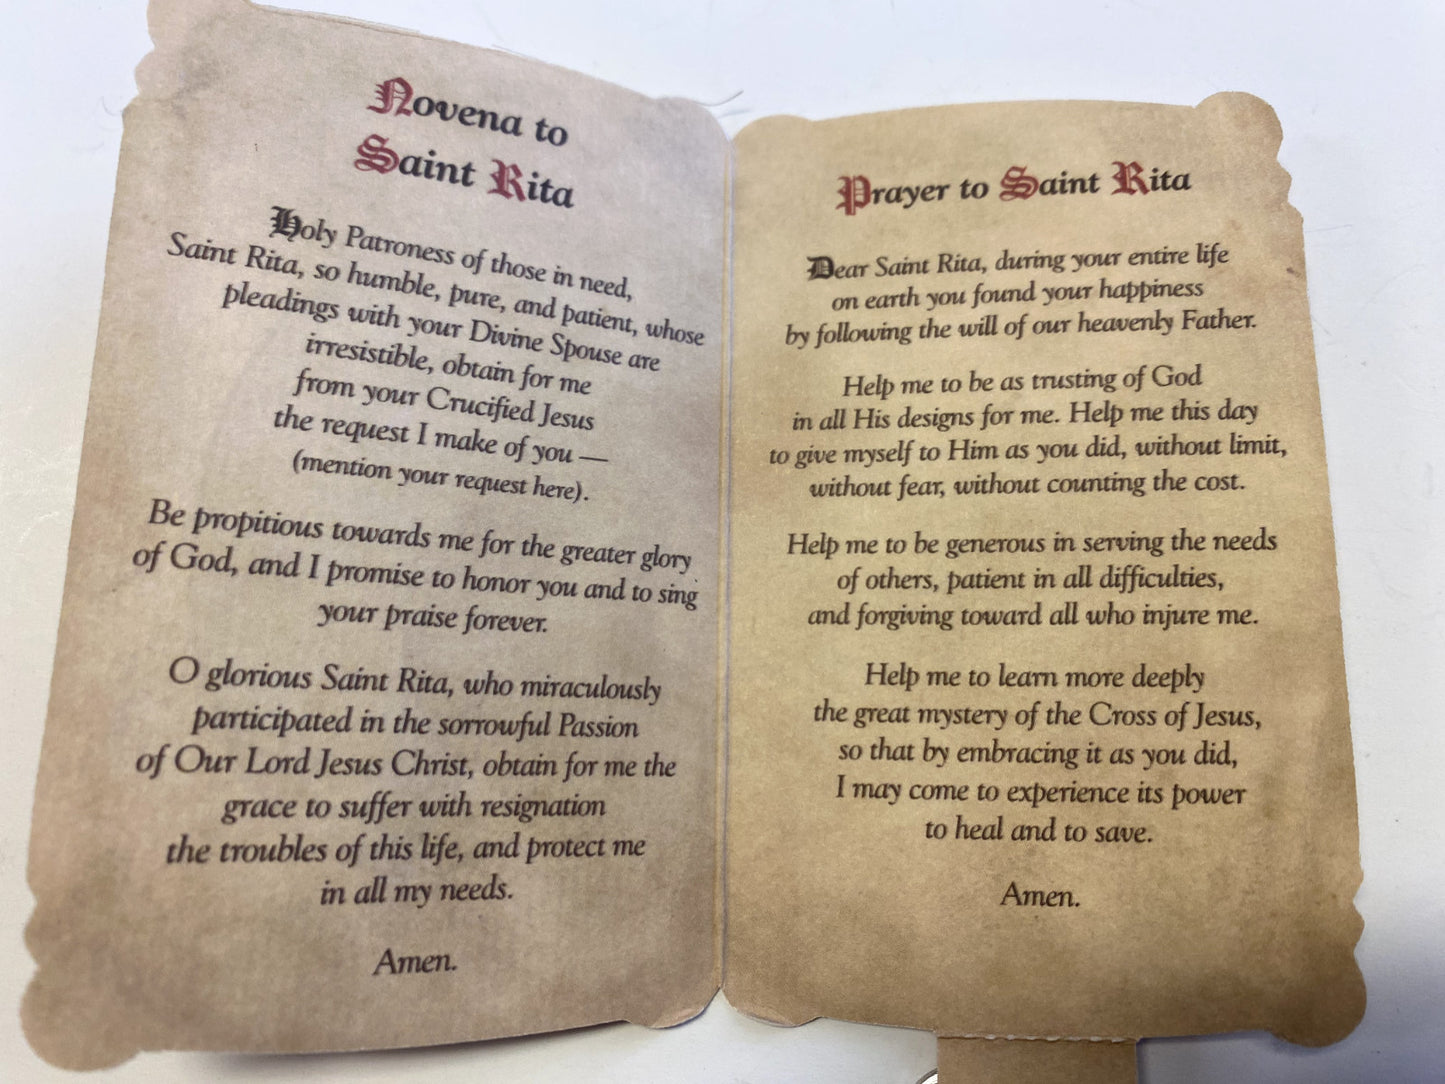 Novena to
Saint Rita
Holy Patroness of those in need,
Saint Rita, so humble, pure, and patient, whose
pleadings with your Divine Spouse are
irresistible, obtain for me
from your Crucified Jesus
the request I make of you —
(mention your request here).
Be propitious towards me for the greater glory
of God, and I promise to honor you and to sing
your praise forever.
O glorious Saint Rita, who miraculously
participated in the sorrowful Passion
of Our Lord Jesus Christ, obtain for me the
grace to suffer with resignation
the troubles of this life, and protect me
in all my needs.
Amen.
Prayer to Saint Rita
Dear Saint Rita, during your entire life
on earth you found your happiness
by following the will of our heavenly Father.
Help me to be as trusting of God
in all His designs for me. Help me this day
to give myself to Him as you did, without limit,
without fear, without counting the cost.
Help me to be generous in serving the needs
of others, patient in all difficulties,
and forgiving toward all who injure me.
Help me to learn more deeply
the great mystery of the Cross of Jesus,
so that by embracing it as you did,
I may come to experience its power
to heal and to save.
Amen.